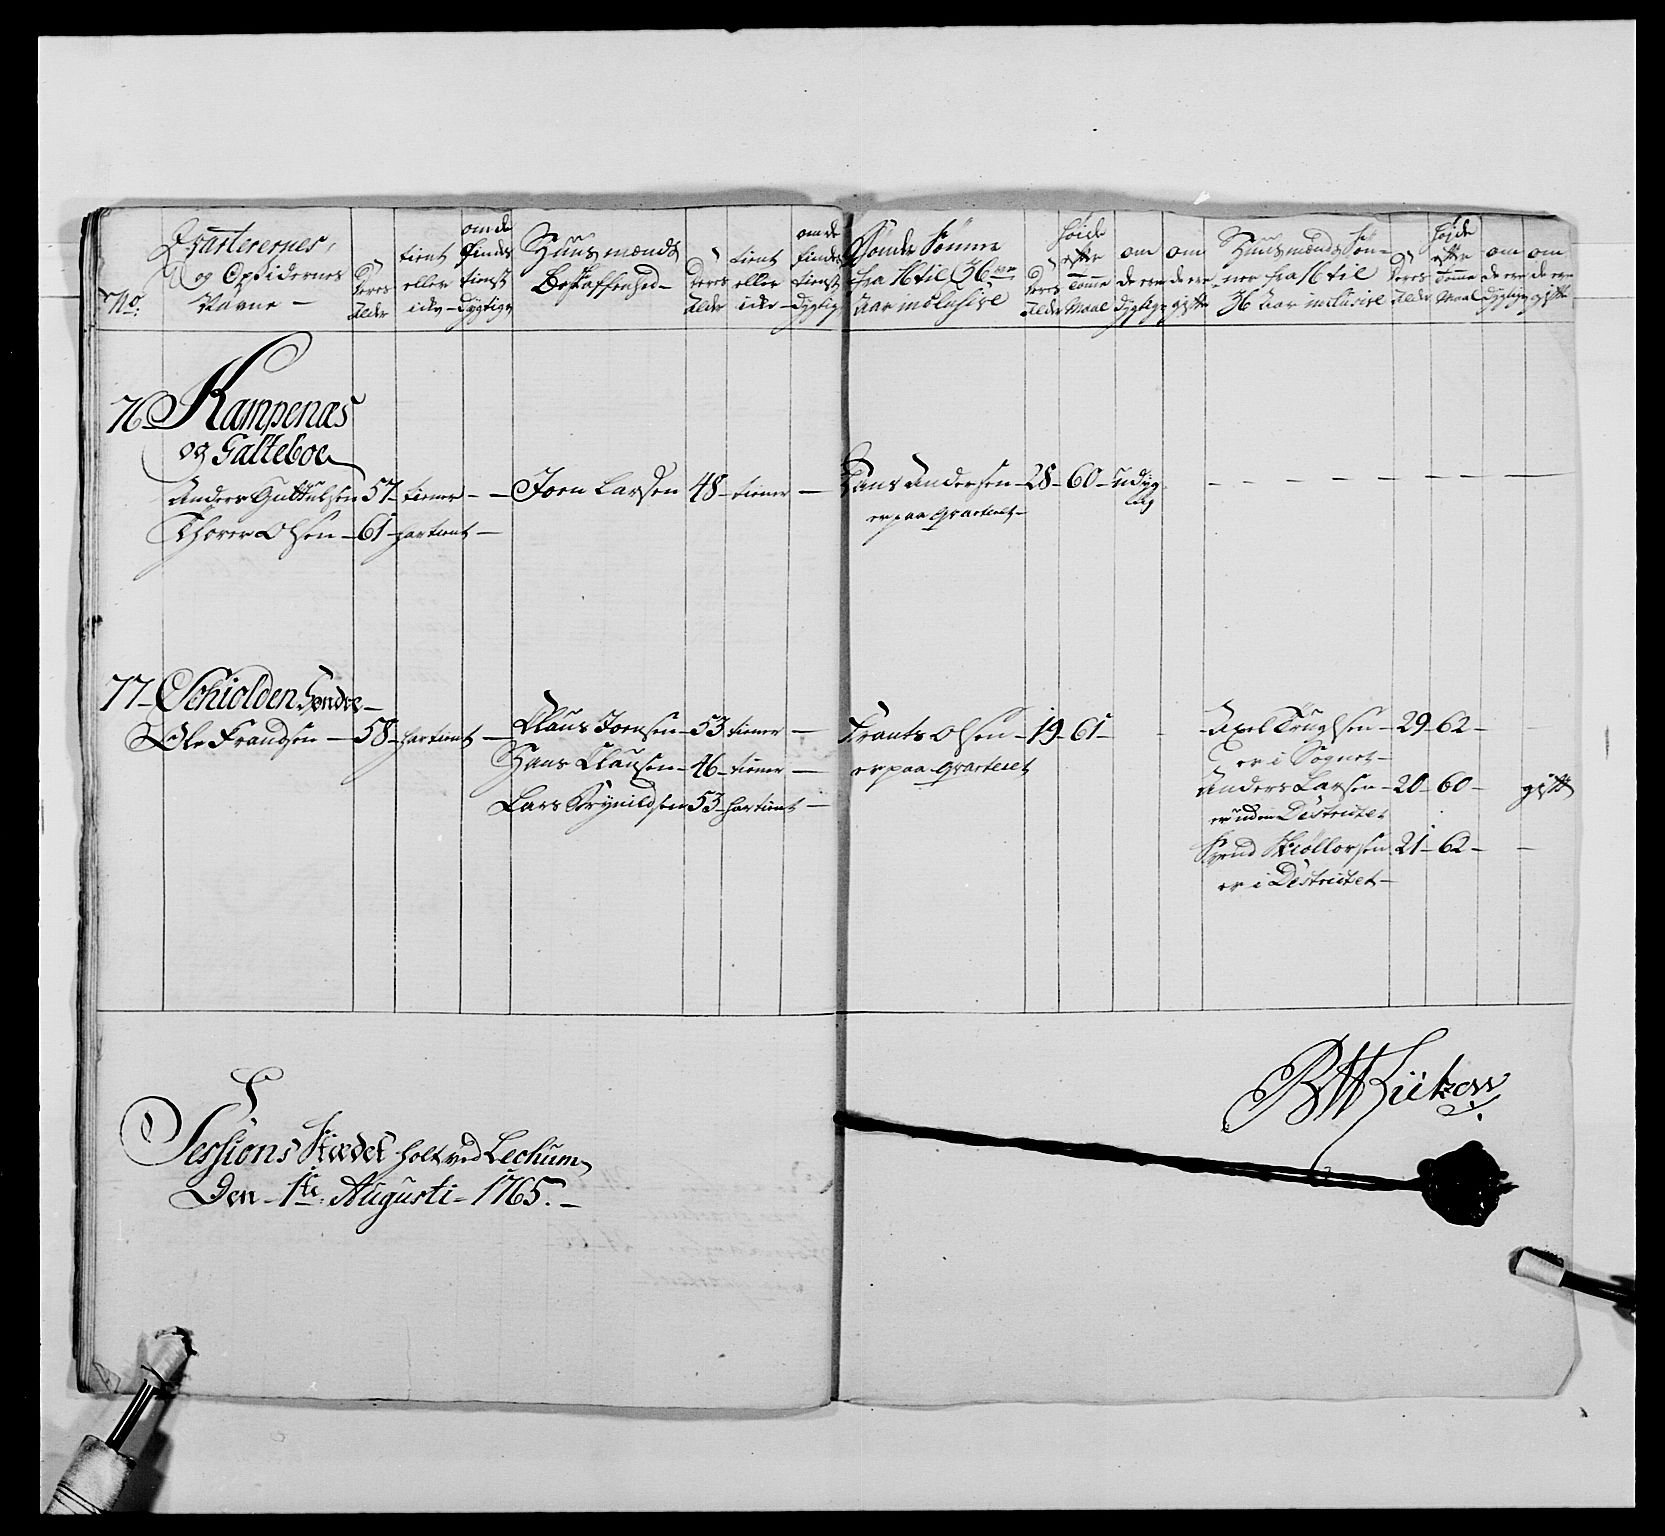 No:
Qvarterernes,
og Opsidernes
Navne –
Deres
Alder
tient
eller
ikke
om de
findes
tienst
dygtige
Huusmænds
Beskaffenhed –
Deres
Alder
tient
eller
ikke
om de
findes
tienst
dygtig
Bønder Sønner
fra 16 til 36
Aar inclusive
Deres
Alder
Høide
efter
Tomme
Maal
om
de ere
dygtige
om
de ere
gifte
Huusmænds Søn-
ner fra 16 til
36 Aar inclusive
Deres
Alder
Højde
efter
Tomme
Maal
om
de ere
dygtige
om
de ere
gifte
76 Kampenæs
og Galteboe
Anders Guttulsen 57 – tiener – – Joen Larsen 48 – tiener – Hans Andersen – 28 – 60 – udyg
tig
er paa Qvarteret –
Thorer Olsen – 61 – har tient –
77 – Schiolden Søndre –
Ole Frandsen – 58 – har tient – Claus Joensen – 53 – tiener – Frants Olsen – 19 – 61 – – Axel Trugelsen – 29 – 62 – –
Hans Clausen – 46 – tiener – er paa Qvarteret er i Sognet –
Lars Brynildsen 53 – har tient – Anders Larsen – 20 – 60 – gift
er uden Districtet
Svend Kiollorsen 21 – 62 – –
er i Districtet –
Sessions Stædet holt ved Lechum
Den – 1te Augusti – 1765. –
B W Lützow